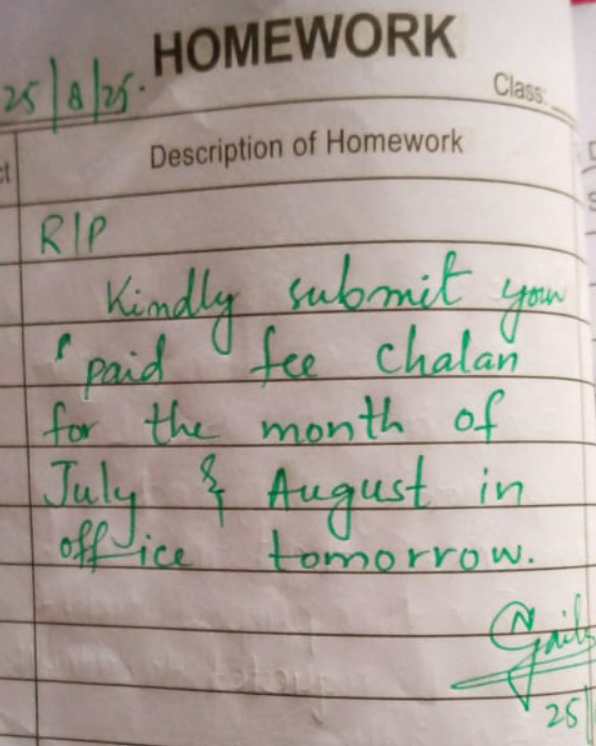 HOMEWORK
25/8/25.
Class:
ct
Description of Homework
RIP
Kindly submit your
paid fee chalan
for the month of
July & August in
office tomorrow.
25